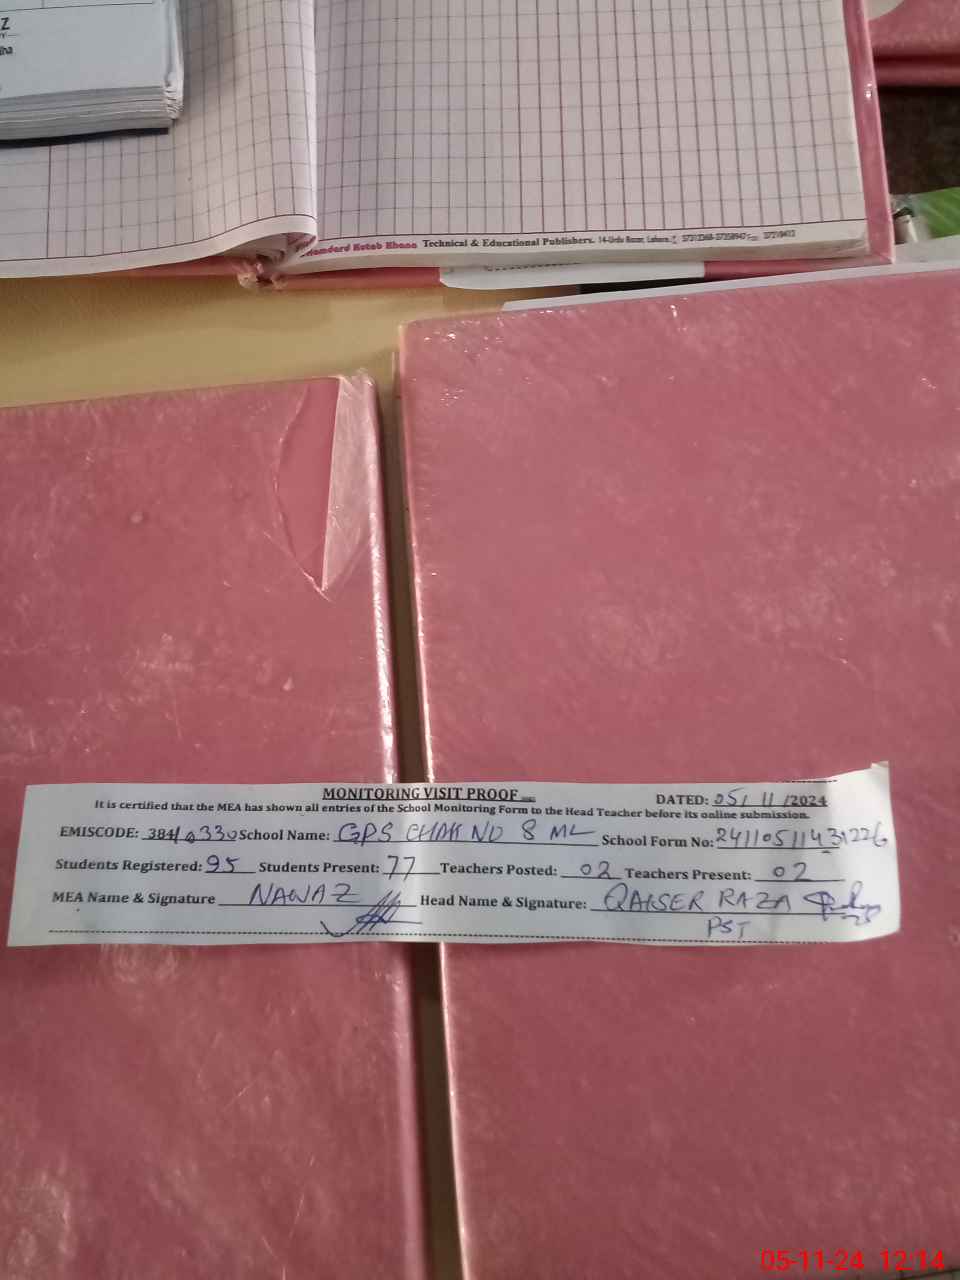 Z
Hamdard Kutab Khana Technical & Educational Publishers. 14-Urdu Bazar, Lahore.
MONITORING VISIT PROOF
DATED: 05/11/2024
It is certified that the MEA has shown all entries of the School Monitoring Form to the Head Teacher before its online submission.
EMISCODE: 38410330 School Name: GPS CHAK NO 8 ML School Form No: 24110511431226
Students Registered: 95 Students Present: 77 Teachers Posted: 02 Teachers Present: 02
MEA Name & Signature NAWAZ Head Name & Signature: QAISER RAZA
PST
05-11-24 12:14